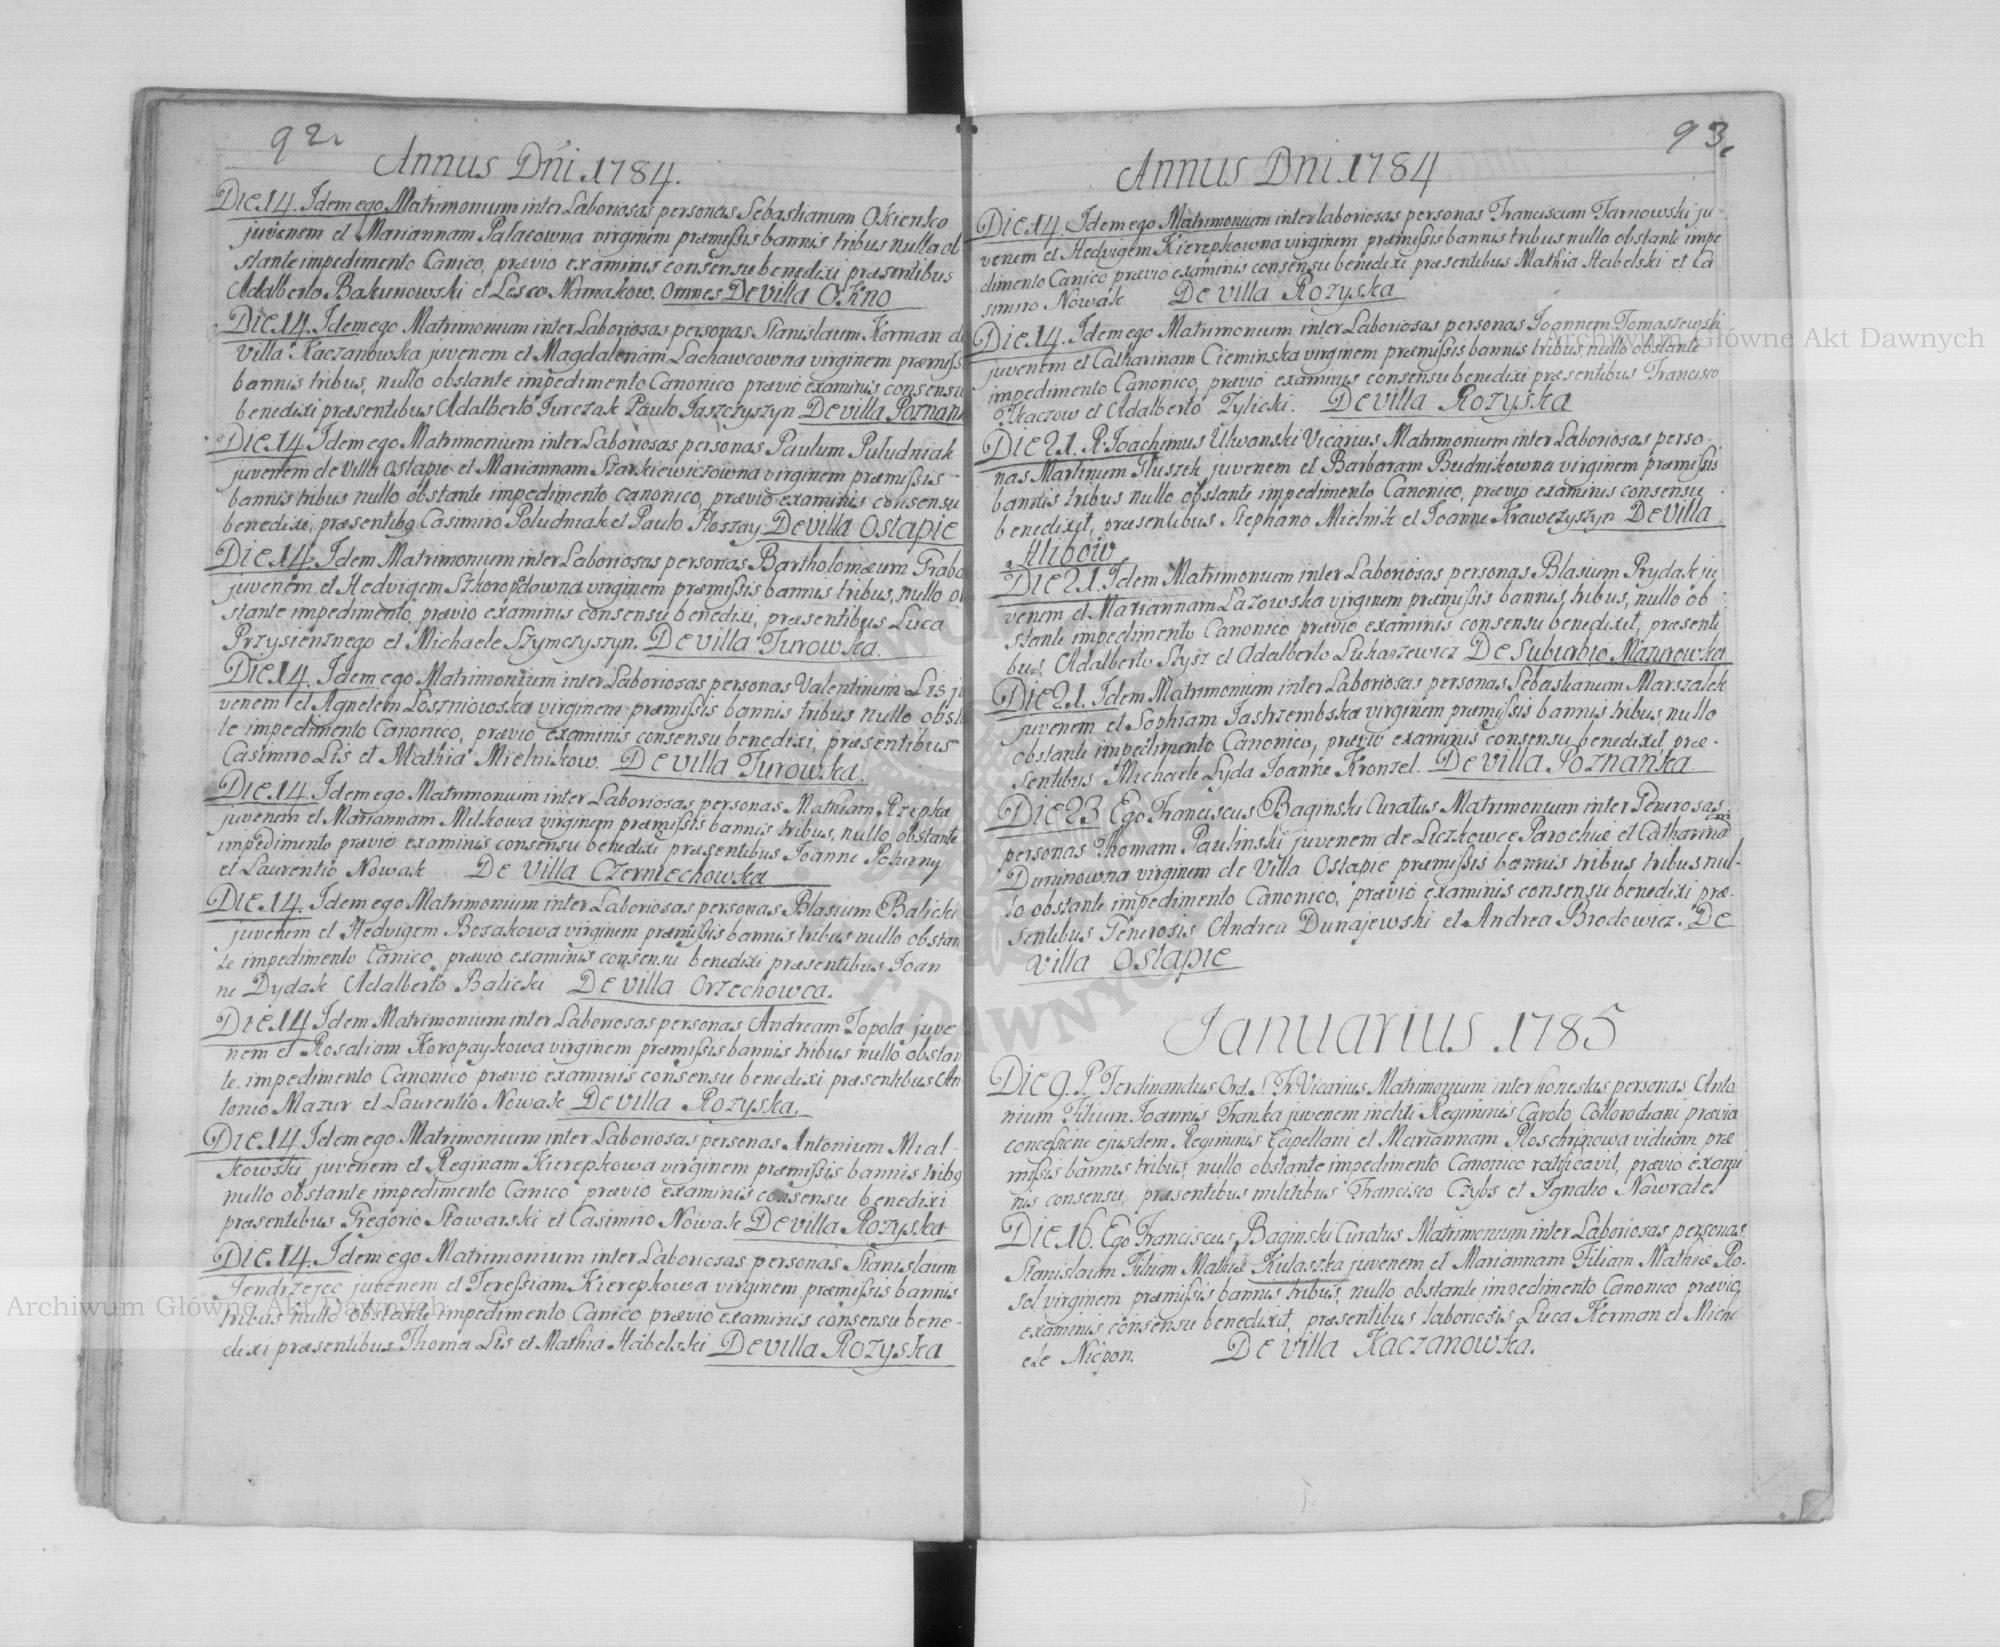 92.
Annus Dñi .1784.
Die.14. Idem ego Matrimonium inter Laboriosas personas Sebastianum Okiensko
juvenem et Mariannam Palacowna virginem præmissis bannis tribus nullo ob
stante impedimento Canico, prævio examinis consensu benedixi præsentibus
Adalberto Bakunowski et Lesco Namakow. omnes De villa Okno
Die.14. Idem ego Matrimonium inter Laboriosas personas Stanislaum Korman de
Villa Kaczanowka juvenem et Magdalenam Lachawcowna virginem præmiss
bannis tribus, nullo obstante impedimento Canonico, prævio examinis consensu
benedixi præsentibus Adalberto Jurczak Paulo Jaszczyszyn De villa Poznank
Die.14 Idem ego Matrimonium inter Laboriosas personas Paulum Puludniak
juvenem de Villa Ostapie et Mariannam Szarkiewiczowna virginem præmissis
bannis tribus nullo obstante impedimento canonico, prævio examinis consensu
benedixi, præsentibg Casimiro Poludniak et Paulo Ploszay. De villa Ostapie
Die.14. Idem Matrimonium inter Laboriosas personas Bartholomæum Grabo
juvenem et Hedvigem Szkoropadowna virginem præmissis bannis tribus, nullo ob
stante impedimento, prævio examinis consensu benedixi, præsentibus Luca
Przysienznego et Michaele Szymczyszyn. De villa Turowka.
Die.14. Idem ego Matrimonium inter Laboriosas personas Valentinum Lis ju
venem et Agnetem Loszniowska virginem præmissis bannis tribus nullo obst
te impedimento Canonico, prævio examinis consensu benedixi, præsentibus
Casimiro Lis et Mathia Mielnikow. De villa Turowka.
Die.14. Idem ego Matrimonium inter Laboriosas personas Mathiam Rzepka
juvenem et Mariannam Milkowa virginem præmissis bannis tribus, nullo obstante
impedimento prævio examinis consensu benedixi præsentibus Joanne Pokurny
et Laurentio Nowak De Villa Czerniechowka
Die.14. Idem ego Matrimonium inter Laboriosas personas Blasium Balicki
juvenem et Hedvigem Bosakowa virginem præmissis bannis tribus nullo obstan
te impedimento Canico, prævio examinis consensu benedixi præsentibus Joan
ne Dydak Adalberto Balicki De villa Orzechowca.
Die.14 Idem Matrimonium inter Laboriosas personas Andream Topola juve
nem et Rosaliam Koropaykowa virginem præmissis bannis tribus nullo obstan
te impedimento Canonico prævio examinis consensu benedixi præsentibus An
tonio Mazur et Laurentio Nowak De villa Rozyska.
Die.14 Idem ego Matrimonium inter Laboriosas personas Antonium Mial-
kowski juvenem et Reginam Kierepkowa virginem præmissis bannis tribg
nullo obstante impedimento Canico prævio examinis consensu benedixi
præsentibus Gregorio Stawarski et Casimiro Nowak De villa Rozyska
Die.14. Idem ego Matrimonium inter Laboriosas personas Stanislaum
Jendrzejec juvenem et Teressiam Kierepkowa virginem præmissis bannis
tribus nullo obstante impedimento Canico prævio examinis consensu bene-
dixi præsentibus Thoma Lis et Mathia Habelski De villa Rozyska
93.
Annus Dni .1784
Die.14. Idem ego Matrimonium inter laboriosas personas Franciscum Tarnowski ju
venem et Hedvigem Kierepkowna virginem præmissis bannis tribus nullo obstante impe
dimento Canico prævio examinis consensu benedixi præsentibus Mathia Habelski et Ca
simiro Nowak De villa Rozyska
Die.14. Idem ego Matrimonium inter Laboriosas personas Joannem Tomaszewski
juvenem et Catharinam Cieminska virginem præmissis bannis tribus, nullo obstante
impedimento Canonico, prævio examinis consensu benedixi præsentibus Francisco
Tkaczow et Adalberto Zylicki. De villa Rozyska
Die 21. R. Joachimus Ulwanski Vicarius Matrimonium inter Laboriosas perso-
nas Martinum Tluszek juvenem et Barbaram Budnikowna virginem præmissis
bannis tribus nullo obstante impedimento Canonico, prævio examinis consensu
benedixit, præsentibus Stephano Mielnik et Joanne Krawczyszyn De villa
Hlibow
Die 21. Idem Matrimonium inter Laboriosas personas Blasium Prydak ju
venem et Mariannam Lazowska virginem præmissis bannis, tribus, nullo ob
stante impedimento Canonico prævio examinis consensu benedixit, præsenti
bus Adalberto Slysz et Adalberto Lukaszewicz De Suburbio Mazurowka
Die 21. Idem Matrimonium inter Laboriosas personas Sebastianum Marszalek
juvenem et Sophiam Jastrzembska virginem præmissis bannis tribus, nullo
obstante impedimento Canonico, prævio examinis consensu benedixit præ-
sentibus Michaele Lyda Joanne Kronzel. De villa Poznanka
Die 23 Ego Franciscus Baginski Curatus Matrimonium inter Generosas
personas Thomam Paulinski juvenem de Liczkowce Parochiæ et Catharinam
Duninowna virginem de Villa Ostapie præmissis bannis tribus tribus nul-
lo obstante impedimento Canonico, prævio examinis consensu benedixi præ-
sentibus Generosis Andrea Dunajewski et Andrea Brodowicz. De
villa Ostapie
Januarius .1785
Die 9. P. Ferdinandus Ord. S. Fr. Vicarius Matrimonium inter honestas personas Anto
nium Filium Joannis Franka juvenem incliti Regiminis Carolo Collorediani prævia
concessione ejusdem Regiminis Capellani et Mariannam Ploschrinowa viduam præ
missis bannis tribus, nullo obstante impedimento Canonico ratificavit, prævio exami
nis consensu, præsentibus militibus Francisco Czybs et Ignatio Nawratel
Die 16. Ego Franciscus Baginski Curatus Matrimonium inter Laboriosas personas
Stanislaum Filium Mathiæ Kulaszka juvenem et Mariannam Filiam Mathiæ Ro-
sol virginem præmissis bannis tribus, nullo obstante impedimento Canonico prævio,
examinis consensu benedixit, præsentibus laboriosis Luca Korman et Micha
ele Niepon. De villa Kaczanowka.
Archiwum Główne Akt Dawnych
Archiwum Główne Akt Dawnych